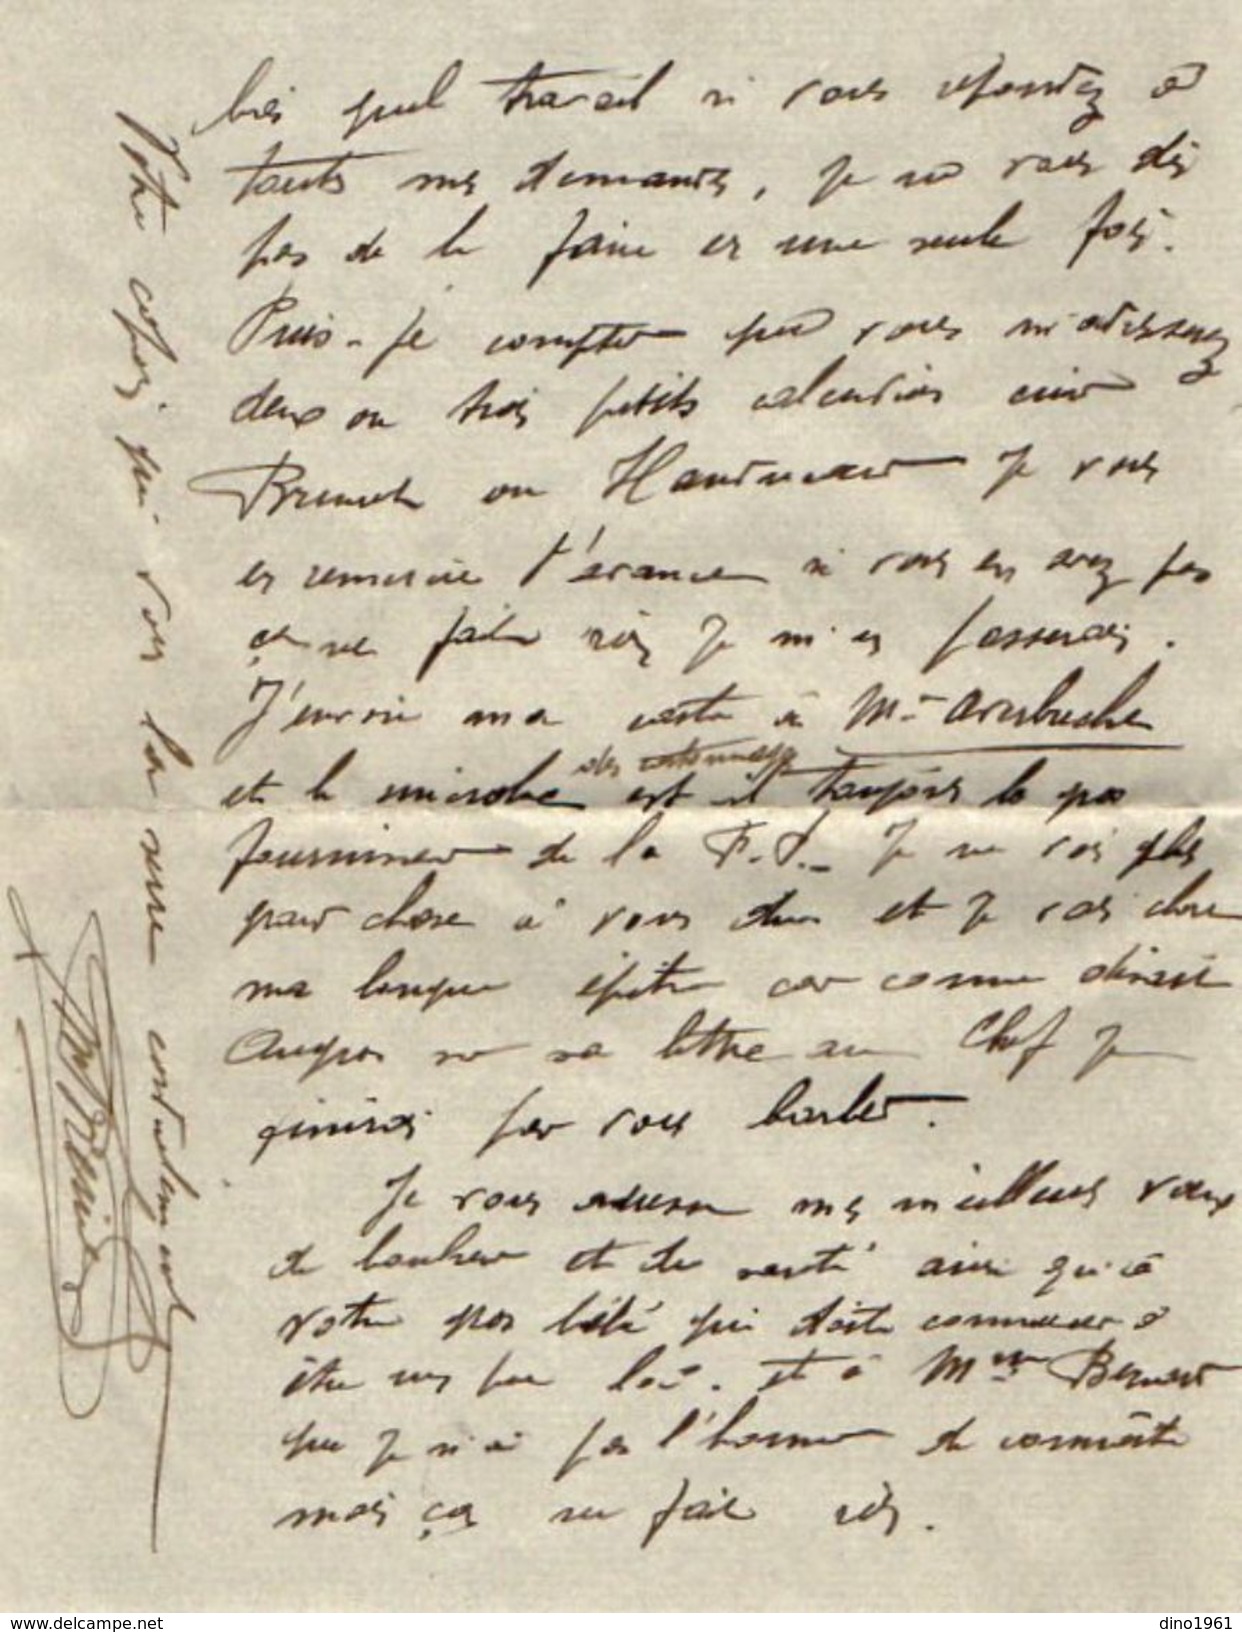 quel travail si vous répondez à
toutes mes demandes, je ne vous dis
pas de le faire en une seule fois.
Puis-je compter que vous m'adresserez
deux ou trois petits calendriers
ou je vous
en remercie d'avance si vous en avez pas
ça ne fait rien je m'en passerai.
J'envoie ma carte à Mr Arnbuche
et le microbe des est il toujours le gros
fournisseur de la F.S. Je ne vois plus
grand chose à vous dire et je vais clore
ma longue épitre car comme dirait
sa lettre au Chef je
finirai par vous barber.
Je vous adresse mes meilleurs vœux
de bonheur et de santé ainsi qu'à
votre gros bébé qui doit commencer à
être un peu là. et à Mme Bernard
que je n'ai pas l'honneur de connaître
mais ça ne fait rien.
Votre copain qui vous la serre cordialement
www.delcampe.net
dino1961